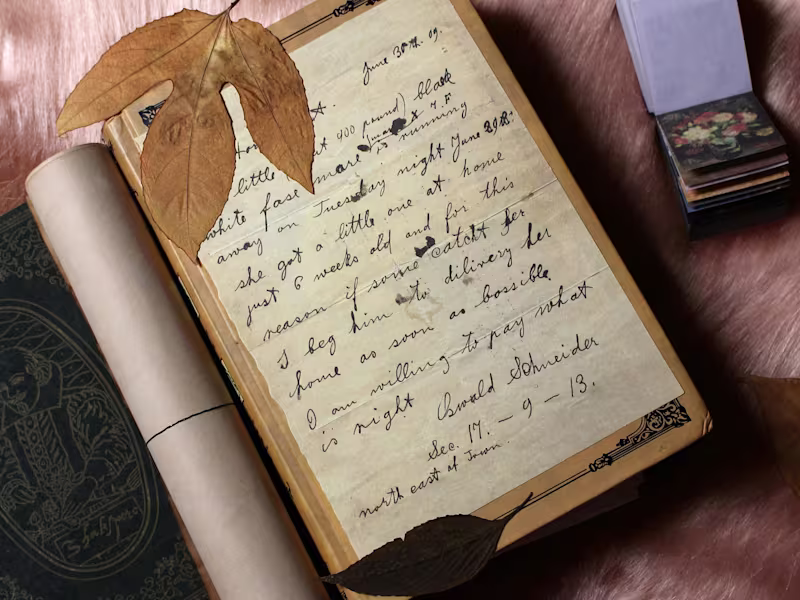 June 30th. 09.
little 400 pound) black
(marck X 7.F
white fase mare is running
away on Tuesday night June 29th.
she got a little one at home
just 6 weeks old and for this
reason if some catcht her
I beg him to dilivery her
home as soon as bossible
I am willing to pay what
is night Oswald Schneider
Sec. 17. – 9 – 13.
north east of Town.